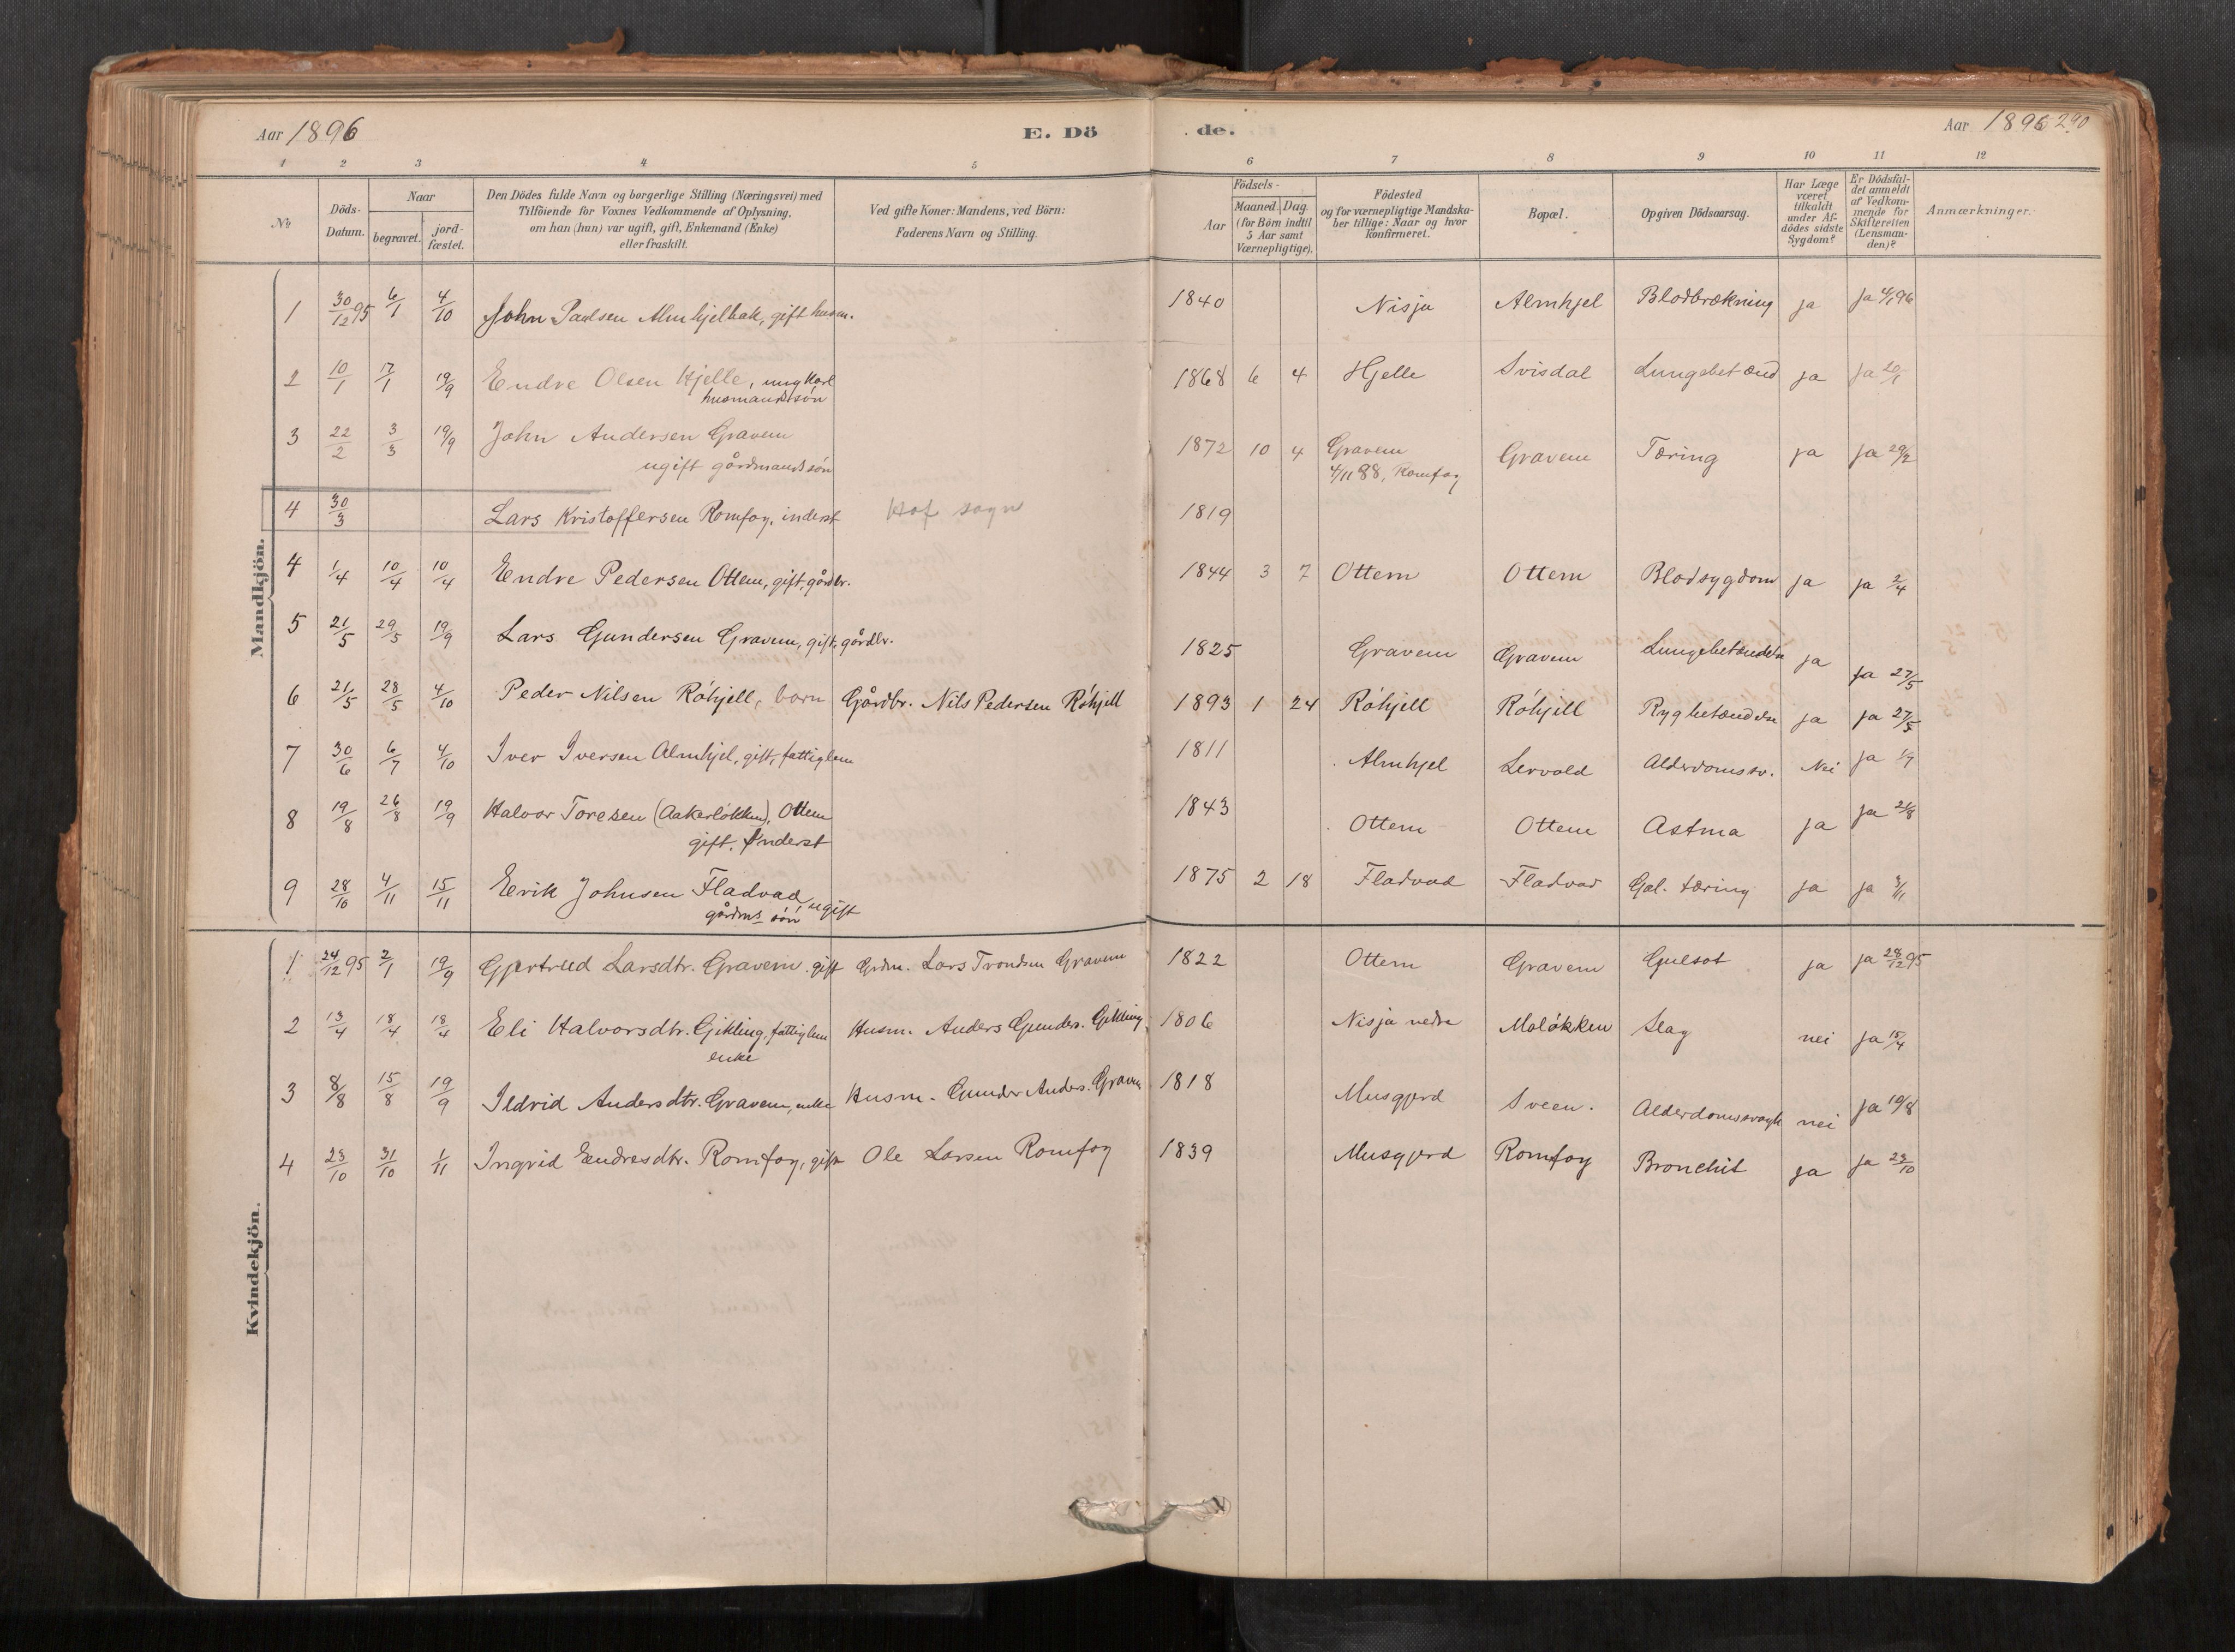 Aar 1896
E. Dö
de.
Aar 1896 290
1 2 3 4 5 6 7 8 9 10 11 12
No
Döds-
Datum.
Naar
begravet.
jord-
fæstet.
Den Dödes fulde Navn og borgerlige Stilling (Næringsvei) med
Tilföiende for Voxnes Vedkommende af Oplysning,
om han (hun) var ugift, gift, Enkemand (Enke)
eller fraskilt.
Ved gifte Koner: Mandens, ved Börn:
Faderens Navn og Stilling.
Födsels-
Aar
Maaned. Dag.
(for Börn indtil
5 Aar samt
Værnepligtige).
Födested
og for værnepligtige Mandska-
ber tillige: Naar og hvor
konfirmeret.
Bopæl.
Opgiven Dödsaarsag.
Har Læge
været
tilkaldt
under Af-
dödes sidste
Sygdom?
Er Dödsfal-
det anmeldt
af Vedkom-
mende for
Skifteretten
(Lensman-
den)?
Anmærkninger.
Mandkjön.
1 30/12 95 6/1 4/10 John Paulsen Almhjelbak, gift husm. 1840 Nisja Almhjel Blodbrækning ja ja 4/1 96
2 10/1 17/1 19/9 Endre Olsen Hjelle, ungkarl 1868 6 4 Hjelle Svisdal Lungebetænd ja ja 20/1
husmandssøn
3 22/2 3/3 19/9 John Andersen Gravem 1872 10 4 Gravem Gravem Tæring ja ja 29/2
ugift gårdmandssøn 4/11 88, Romfog
4 30/3 Lars Kristoffersen Romfog, inderst Hof sogn 1819
4 1/4 10/4 10/4 Endre Pedersen Ottem, gift, gårdbr. 1844 3 7 Ottem Ottem Blodsygdom ja ja 2/4
5 21/5 29/5 19/9 Lars Gundersen Gravem, gift, gårdbr. 1825 Gravem Gravem Lungebetændelse ja ja 27/5
6 21/5 28/5 4/10 Peder Nilsen Röhjell, barn Gårdbr. Nils Pedersen Röhjell 1893 1 24 Röhjell Röhjell Rygbetændelse ja ja 27/5
7 30/6 6/7 4/10 Iver Iversen Almhjel, gift, fattiglem 1811 Almhjel Lervold Alderdomssv. Nei ja 1/7
8 19/8 26/8 19/9 Halvor Toresen (Aakerløkken), Ottem 1843 Ottem Ottem Astma ja ja 21/8
gift, Inderst
9 28/10 4/11 15/11 Eerik Johnsen Fladvad, ugift 1875 2 18 Fladvad Fladvad Gal. tæring ja ja 3/11
gårdms søn
Kvindekjön.
1 24/12 95 2/1 19/9 Gjertrud Larsdtr. Gravem, gift Grdm. Lars Trondsen Gravem 1822 Ottem Gravem Gulsot ja ja 28/12 95
2 13/4 18/4 18/4 Eli Halvorsdtr. Gikling, fattiglem Husm. Anders Gunders. Gikling 1806 Nisja nedre Moløkken Slag nei ja 15/4
enke
3 8/8 15/8 19/9 Ildrid Andersdtr. Gravem, enke Husm. Gunder Anders. Gravem 1818 Musgjerd Sveen. Alderdomssvagh nei ja 10/8
4 23/10 31/10 1/11 Ingrid Endresdtr. Romfog, gift Ole Larsen Romfog 1839 Musgjerd Romfog Bronchit ja ja 23/10